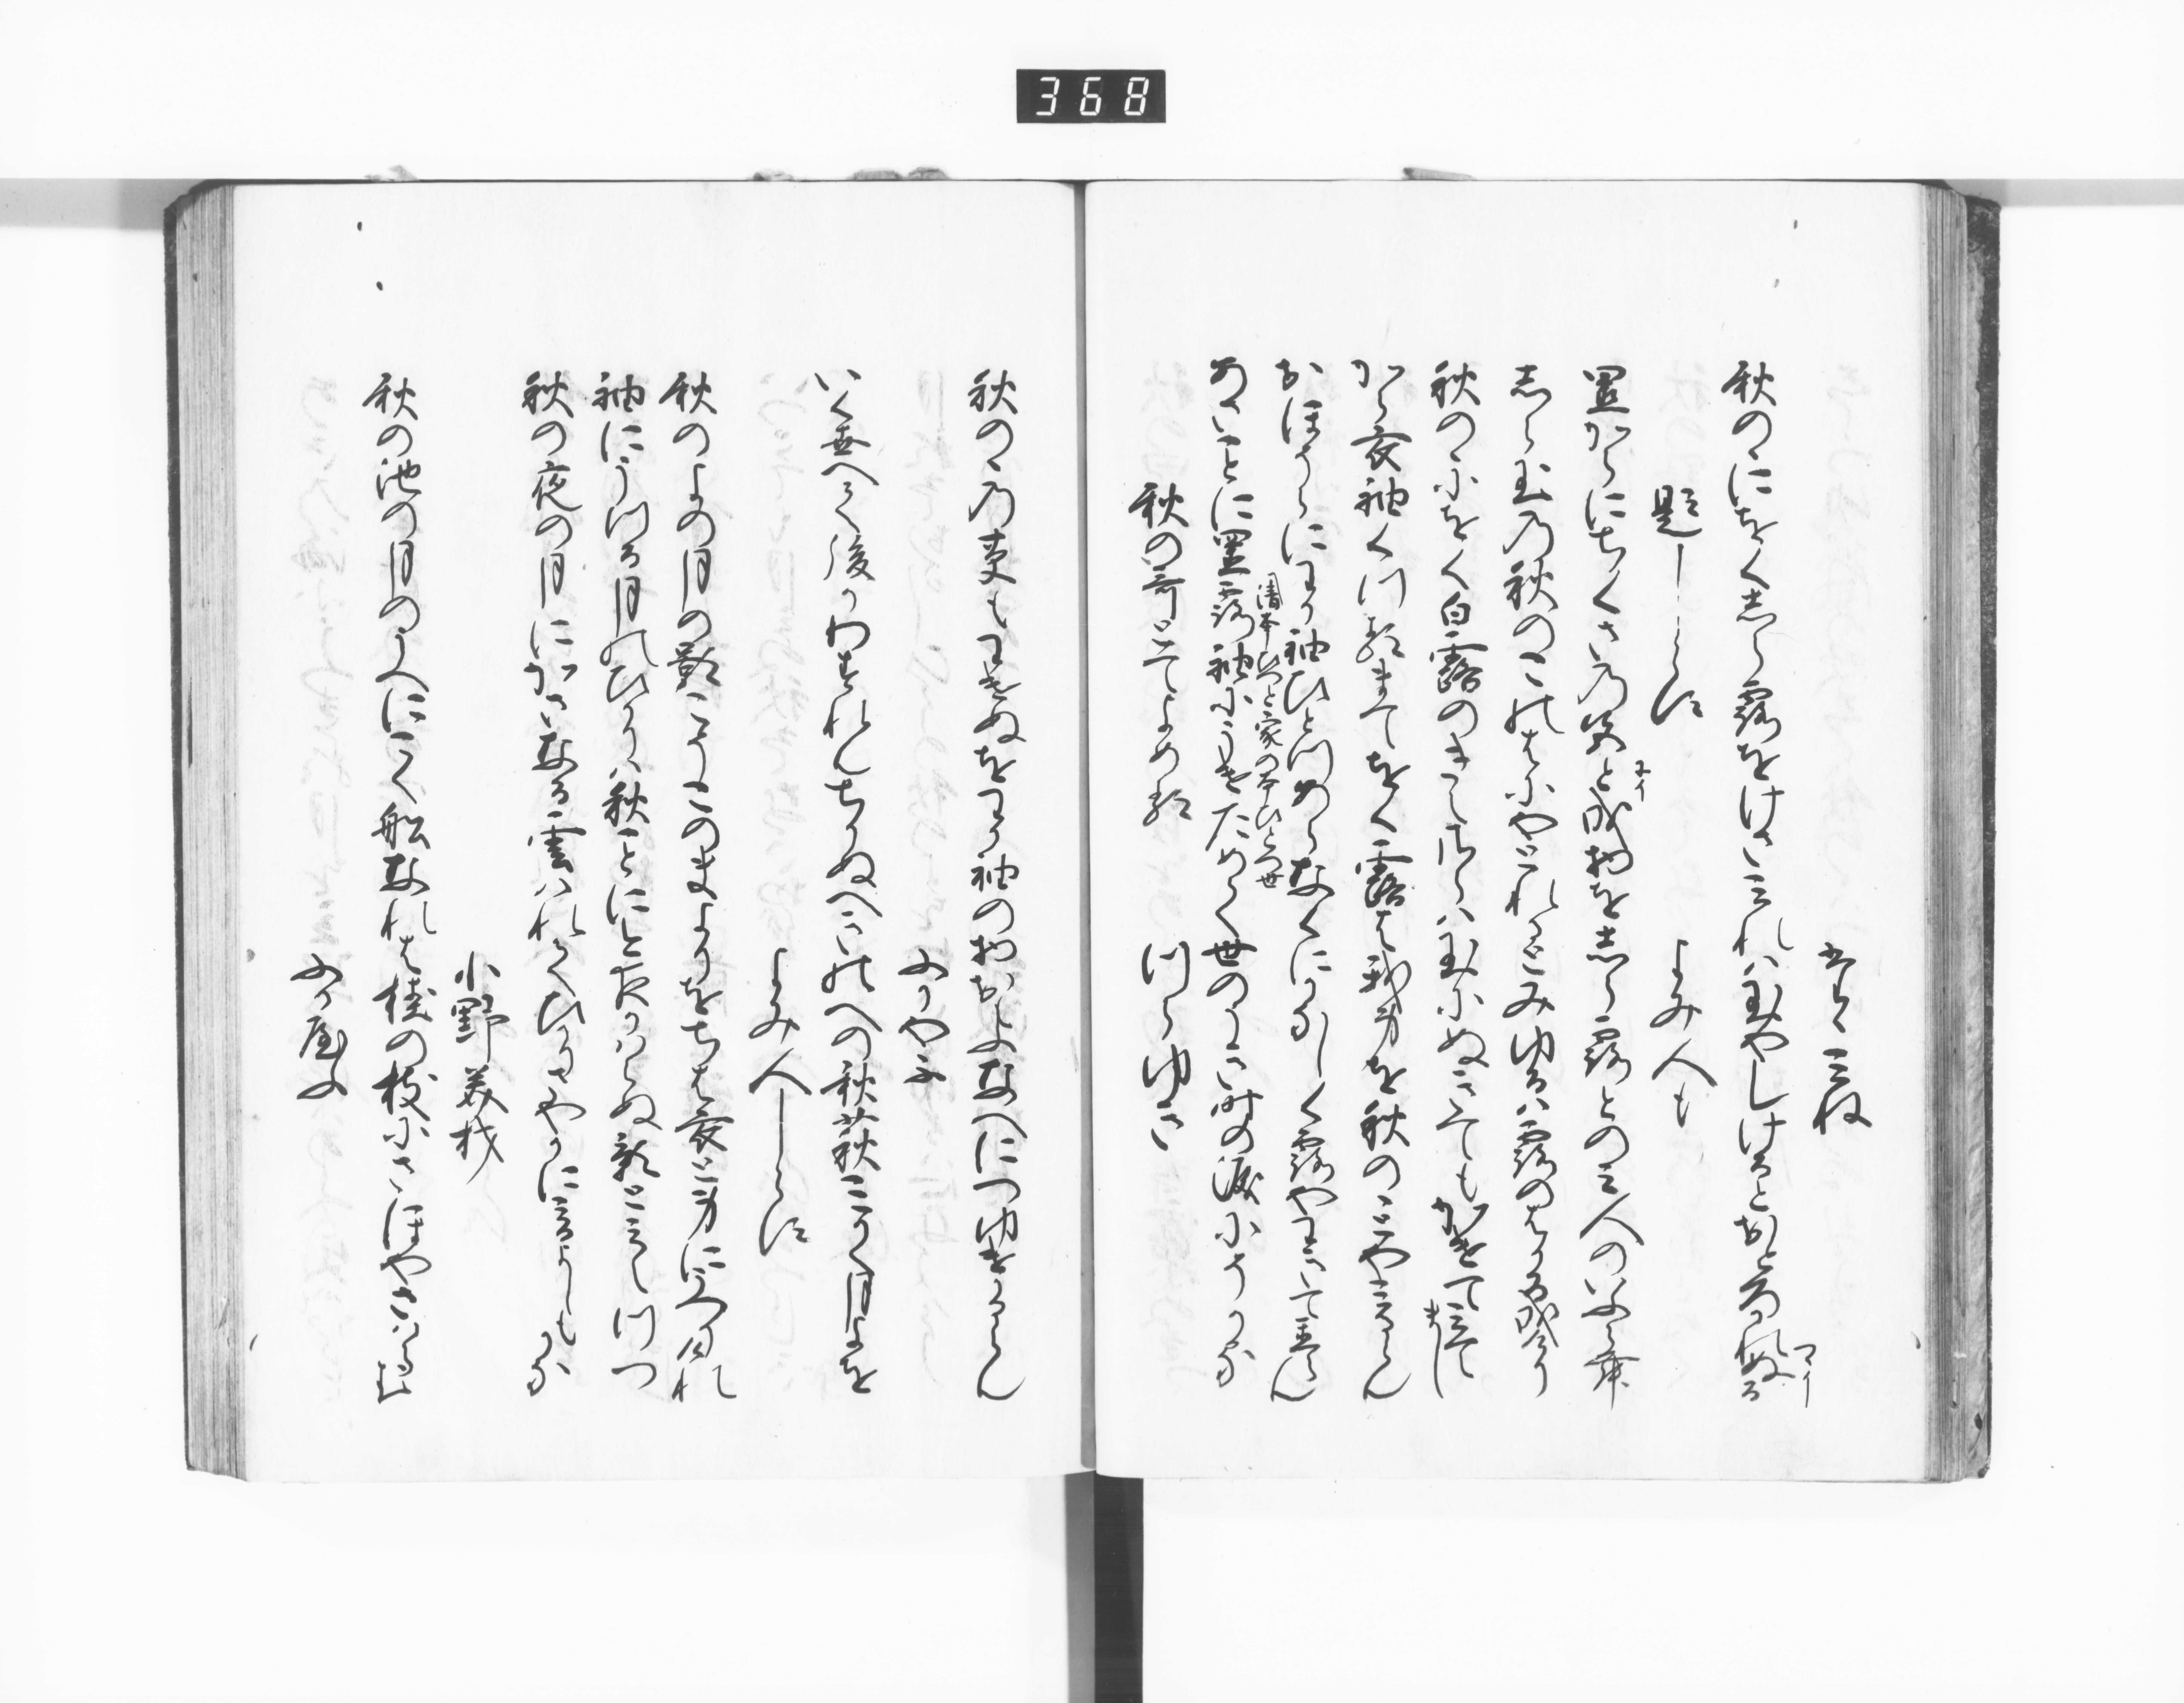 368
秋のゝにをく志ら露をけさみれハ玉やしけるとおとろかれつる
題しらす
よみ人も
置からにちくさの色と成物を志ら露とのみ人のいふらん
志ら玉の秋のこのはにやとれるとみゆるハ露のはかる成けり
秋のゝにをく白露のきえさらハ玉にぬきてもかけてみてまし
から衣袖くつるまてをく露は我身を秋のゝとやみるらん
おほそらにわか袖ひとつあらなくにかなしく露やわきて置らん
あさことに置露袖にうけためて世のうき時の涙にそかる
秋の哥とてよめる
つらゆき
秋のゝの草もわけぬをわか袖の物おもふなへにつゆけかるらん
ふかやふ
いく世へて後かわすれんちりぬへきのへの秋萩みかく月よを
よみ人しらす
秋のよの月の影こそこのまよりをちは衣と身にうつりけれ
袖にうつる月のひかりハ秋ことに今夜かはらぬ影とみえつつ
秋の夜の月にかさなる雲はれてひかりさやかにみるよしもかな
小野美材
秋の池の月のうへにこく船なれは桂の枝にさほやさはらむ
ふか屋ふ